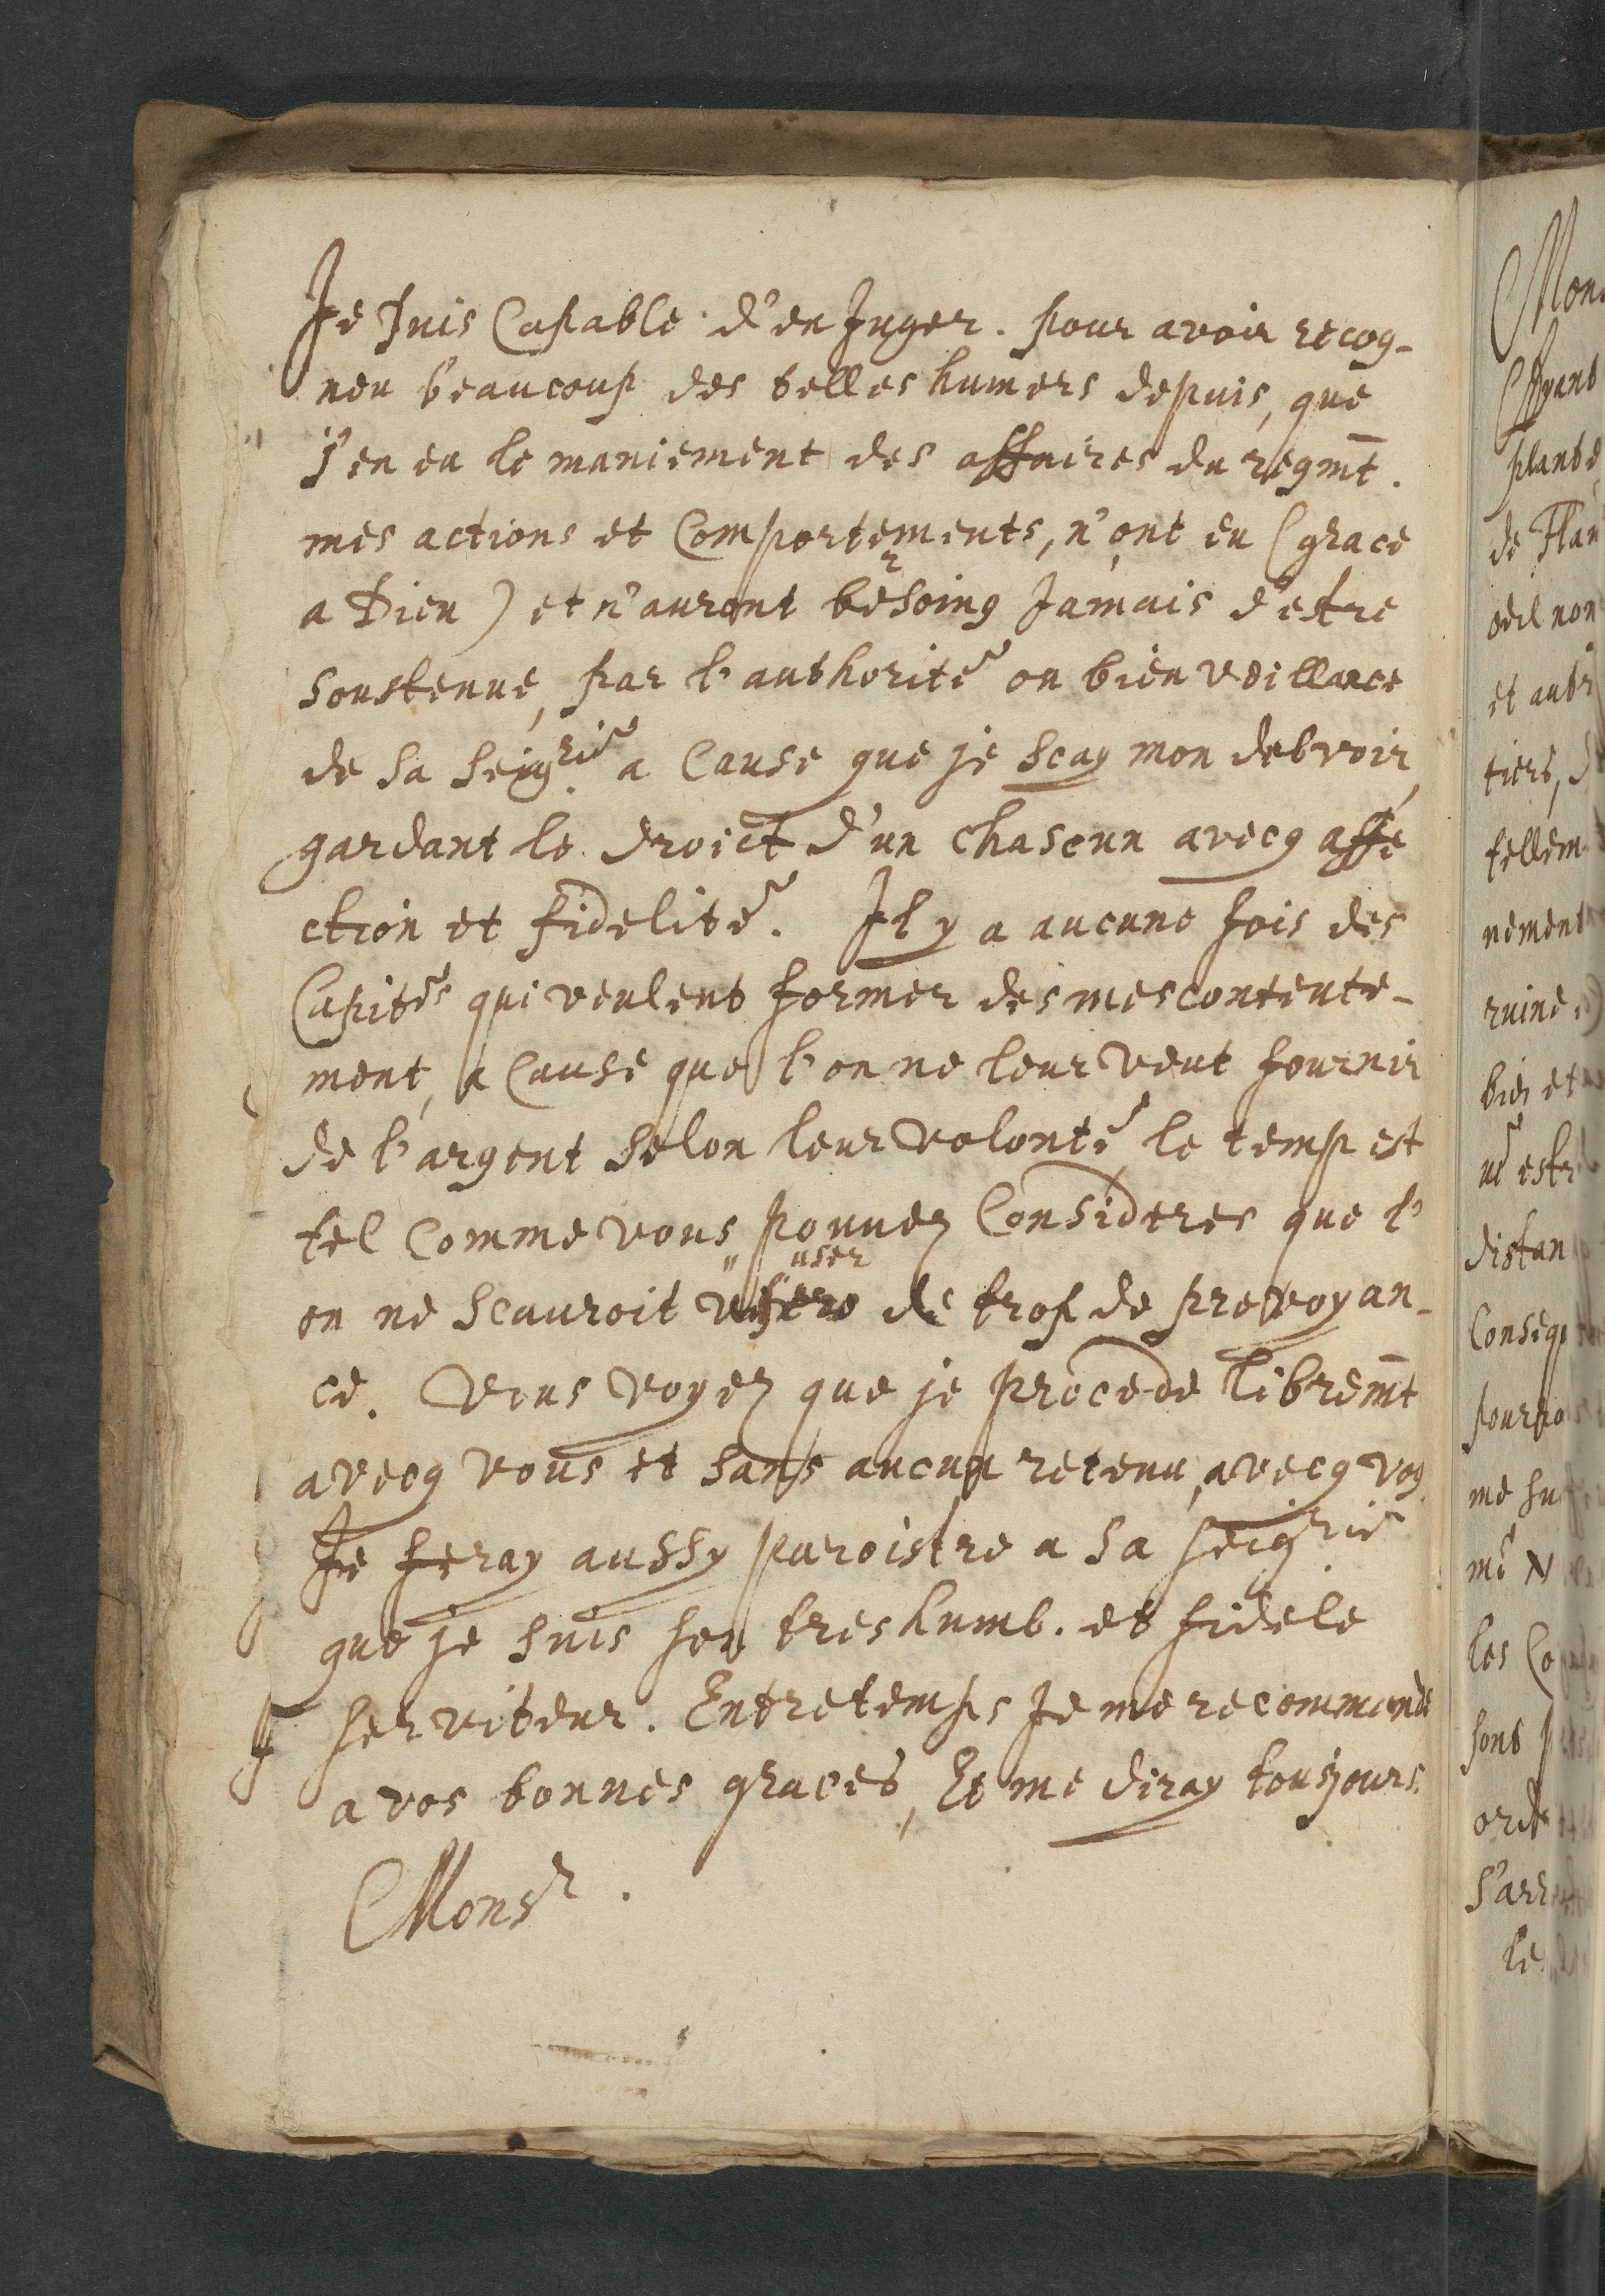 Je suis Capable d'en Juger. pour avoir recog-
neu beaucoup des telles humers depuis, que
j'en eu le maniement des affaires du regmt.
mes actions et Comportements, n'ont eu (grace
a Dieu) et n'auront besoing Jamais d'estre
soustenue, par l'authorité ou bienveillance
de sa seigrie a Cause que je scay mon debvoir,
gardant le droict d'un chascun avecq affe
ction et fidelité. Il y a aucune fois des
Capites qui veulent former des mescontente-
ment, a Cause que l'on ne leur veut fournir
de l'argent selon leur volonté, le temp est
tel Comme vous pouuez Consideres que l'
user
on ne scauroit de trop de prevoyan-
ce. Vous voyez que je procede libremt
avecq vous et sans aucun retenu, avecq vos
Je feray aussy paroistre a sa seigrie
que je suis son treshumb. et fidele
serviteur. Entretemps Je me recommande
a vos bonnes graces, Et me diray tousjours.
Monsr.
Mon
Ayant
plant
de Flan
oeil non
et autr
tiers, d
tellem
nement
ruine
bien et
estr
distan
Conseq
pourro
me su
les Co
sont
ord
s'arr
le